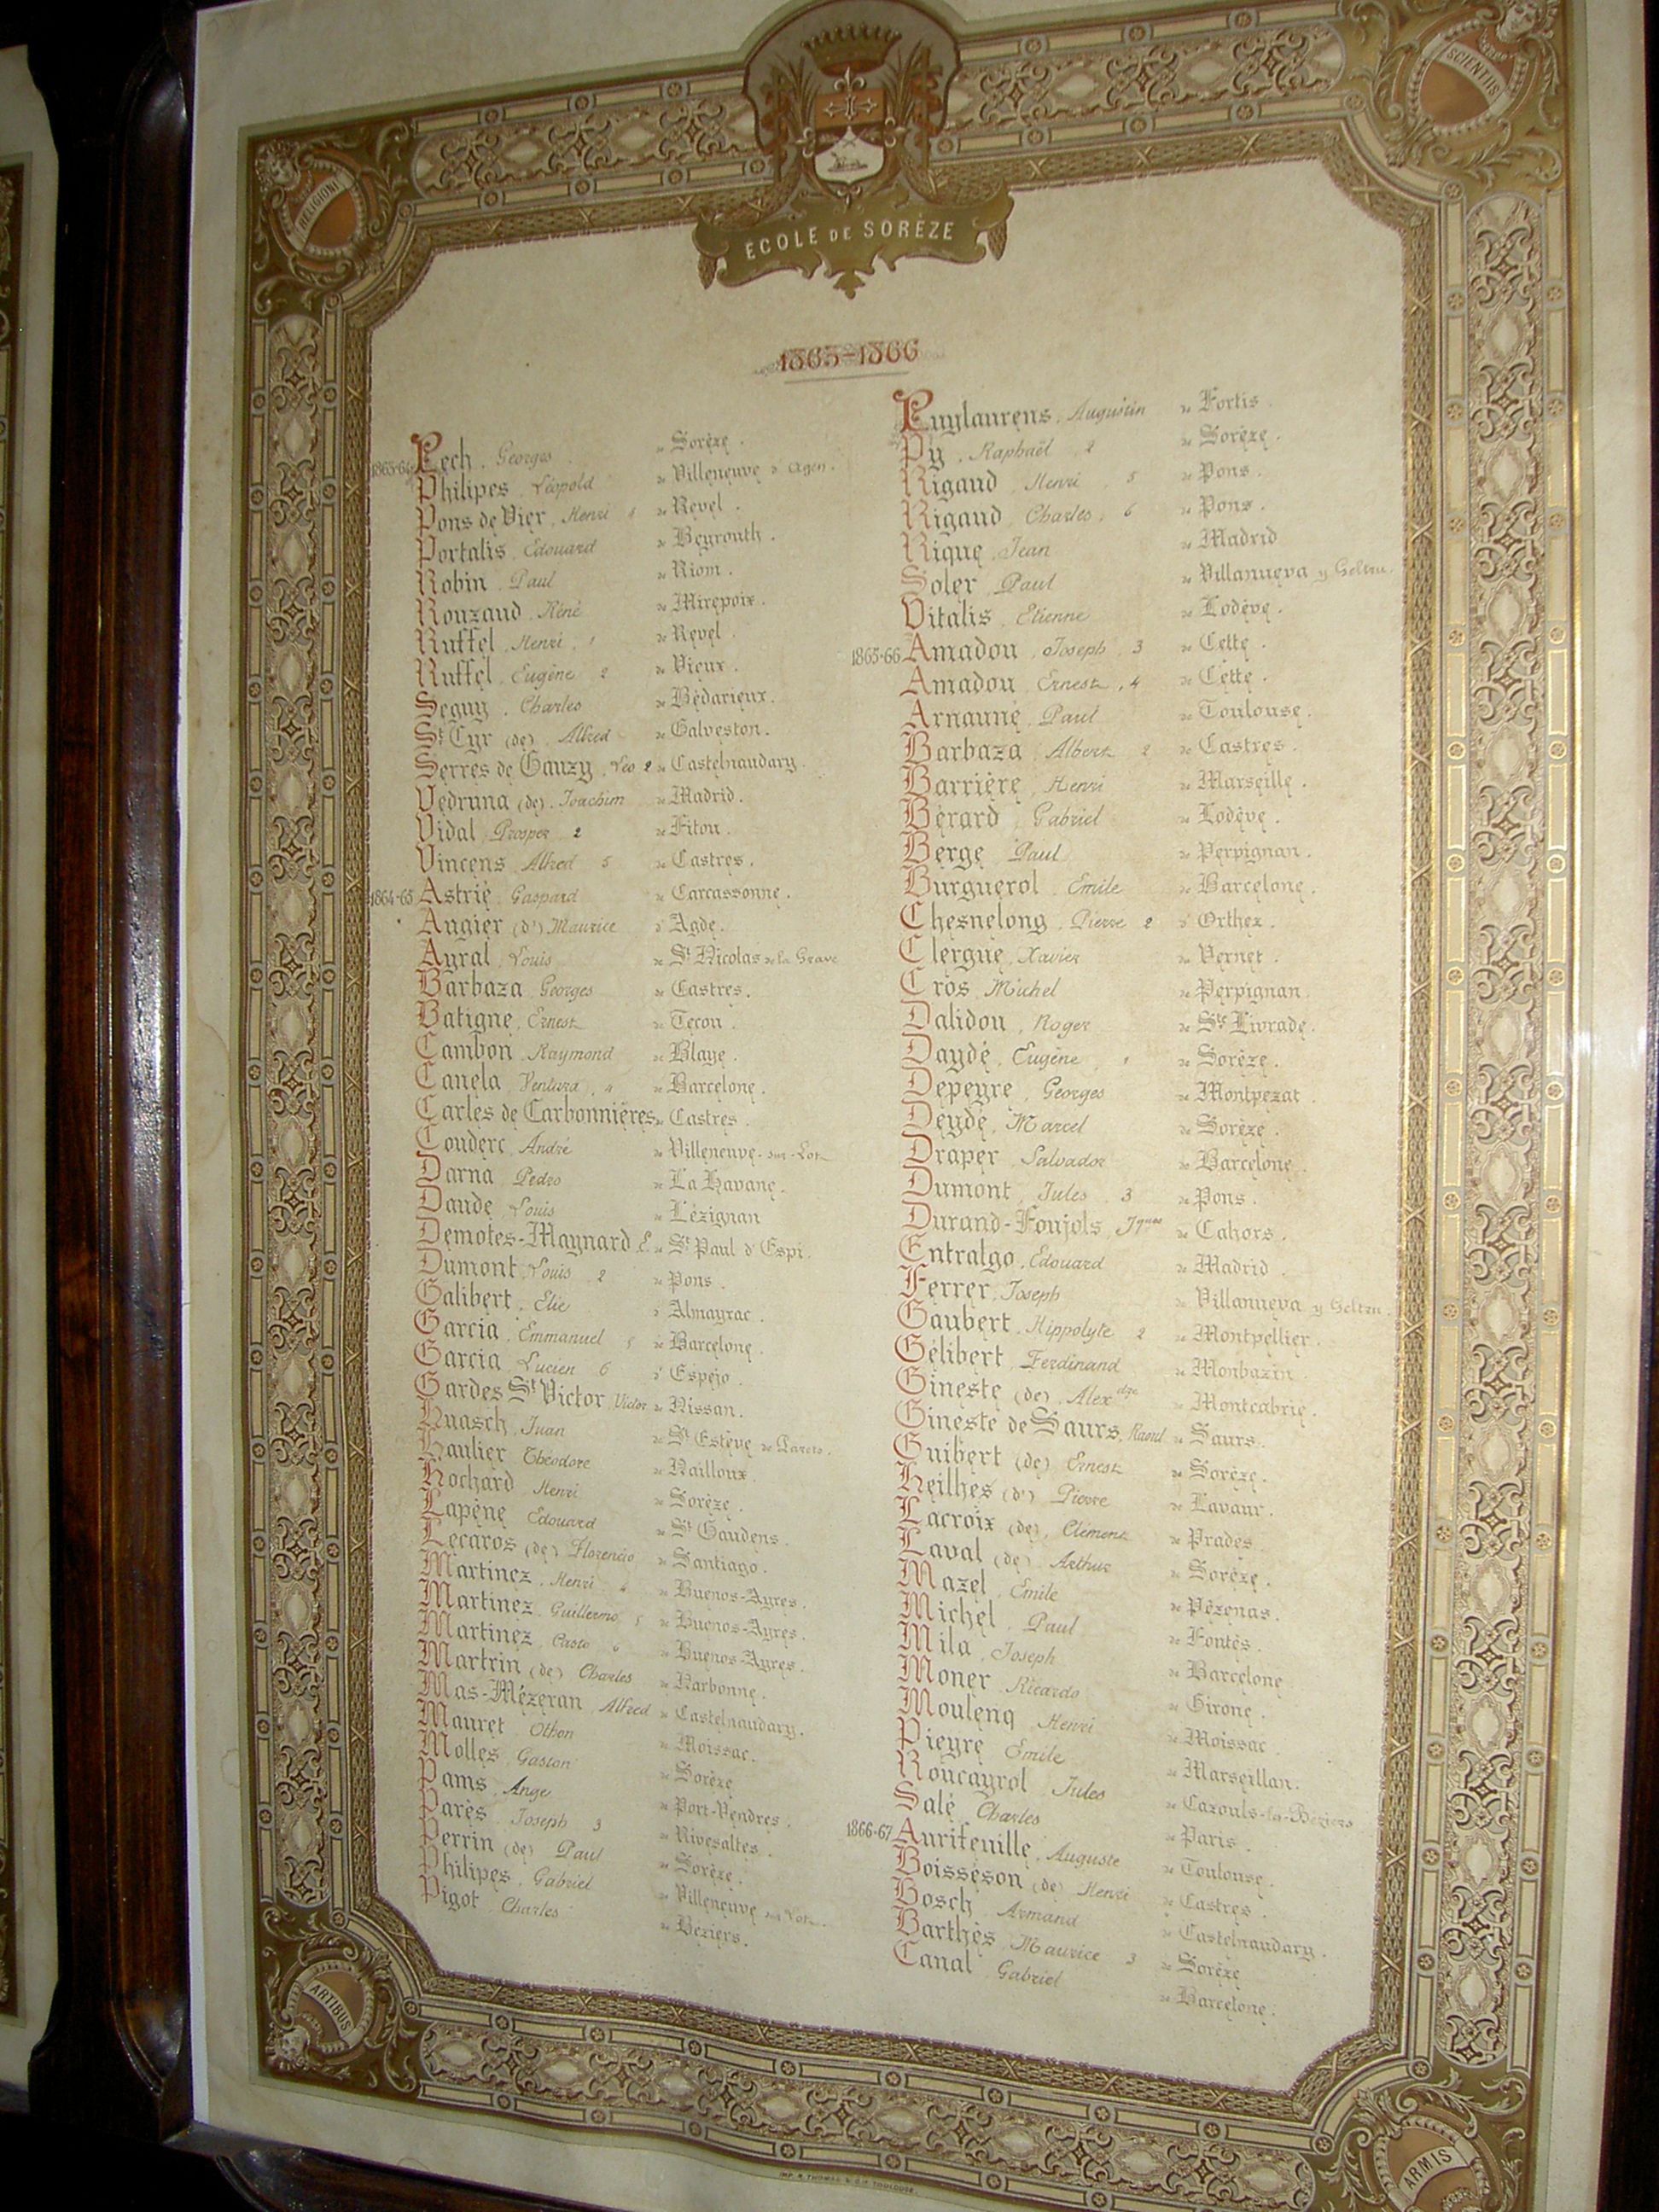 RELIGIONI
SCIENTIIS
ÉCOLE DE SORÈZE
1865-1866
1863-64 Pech. Georges de Sorèze.
Philipes Léopold de Villeneuve s. Agen.
Pons de Vier. Henri de Revel.
Portalis. Edouard de Beyrouth.
Robin. Paul de Riom.
Rouzaud. Réné de Mirepoix.
Ruffel. Henri, 1 de Revel.
Ruffel. Eugène 2 de Vieux.
Seguy. Charles de Bédarieux.
St Cyr (de). Alfred de Galveston.
Serres de Gauzy. Léo 2 de Castelnaudary.
Vedruna (de). Joachim de Madrid.
Vidal. Prosper. 2 de Fitou.
Vincens Alfred 5 de Castres.
1864-65 Astrié. Gaspard de Carcassonne.
Augier (d') Maurice d' Agde.
Ayral. Louis de St Nicolas de la Grave
Barbaza. Georges de Castres.
Batigne. Ernest de Tecou.
Cambon. Raymond de Blaye.
Canela. Ventura. 4 de Barcelone.
Carles de Carbonnières de Castres.
Couderc. André de Villeneuve-sur-Lot
Darna Pedro de La Havane.
Daude Louis de Lézignan
Demotes-Maynard E. de St Paul d'Espi.
Dumont Louis 2 de Pons.
Galibert. Elie d' Almayrac.
Garcia. Emmanuel 5 de Barcelone.
Garcia Lucien 6 d' Espejo.
Gardes St Victor Victor de Nissan.
Huasch Juan de St Estève de Pareto.
Haulier Théodore de Nailloux
Hochard Henri de Sorèze.
Lapène Edouard de St Gaudens.
Lecaros (de) Florencio de Santiago.
Martinez. Henri 4 de Buenos-Ayres.
Martinez. Guillermo 5 de Buenos-Ayres.
Martinez. Casto 6 de Buenos-Ayres.
Martrin (de) Charles de Narbonne.
Mas-Mézeran Alfred de Castelnaudary.
Mauret Othon de Moissac.
Molles Gaston de Sorèze
Pams. Ange de Port-Vendres.
Parès Joseph 3 de Rivesaltes.
Perrin (de) Paul de Sorèze.
Philipes. Gabriel de Villeneuve sur Lot.
Pigot Charles de Béziers.
Puylaurens. Augustin de Fortis.
Py. Raphaël. 2 de Sorèze.
Rigaud Henri, 5 de Pons.
Rigaud Charles, 6 de Pons.
Rique. Jean de Madrid
Soler. Paul de Villanueva y Geltru.
Vitalis Etienne de Lodève.
1865-66 Amadou. Joseph, 3 de Cette.
Amadou Ernest, 4 de Cette.
Arnauné Paul. de Toulouse.
Barbaza Albert 2 de Castres.
Barrière Henri de Marseille.
Bérard Gabriel de Lodève.
Berge Paul de Perpignan.
Burguerol. Emile de Barcelone.
Chesnelong. Pierre 2 d' Orthez.
Clergue. Xavier de Vernet.
Cros Michel de Perpignan
Dalidou, Roger de Ste Livrade.
Daydé. Eugène, 1 de Sorèze.
Depeyre, Georges de Montpezat.
Deydé. Marcel de Sorèze.
Draper Salvador de Barcelone
Dumont Jules 3 de Pons.
Durand-Foujols. de Cahors.
Entralgo. Edouard de Madrid.
Ferrer. Joseph de Villanueva y Geltru.
Gaubert. Hippolyte 2 de Montpellier.
Gélibert. Ferdinand de Monbazin.
Gineste (de) Alexdre de Montcabrié.
Gineste de Saurs. Raoul de Saurs.
Guibert (de) Ernest de Sorèze.
Heilhes (d') Pierre de Lavaur.
Lacroix (de). Clément de Prades.
Laval (de) Arthur de Sorèze.
Mazel. Emile de Pézenas.
Michel Paul de Fontès.
Mila Joseph de Barcelone
Moner Ricardo de Girone.
Moulenq Henri de Moissac
Pieyre Emile de Marseillan.
Roucayrol Jules de Cazouls-les-Béziers
Salé Charles de Paris.
1866-67 Aurifeuille. Auguste de Toulouse.
Boisseson (de) Henri de Castres.
Bosch Armand de Castelnaudary.
Barthès Maurice 3 de Sorèze
Canal Gabriel de Barcelone.
ARTIBUS
ARMIS
IMP. R. THOMAS & Cie TOULOUSE